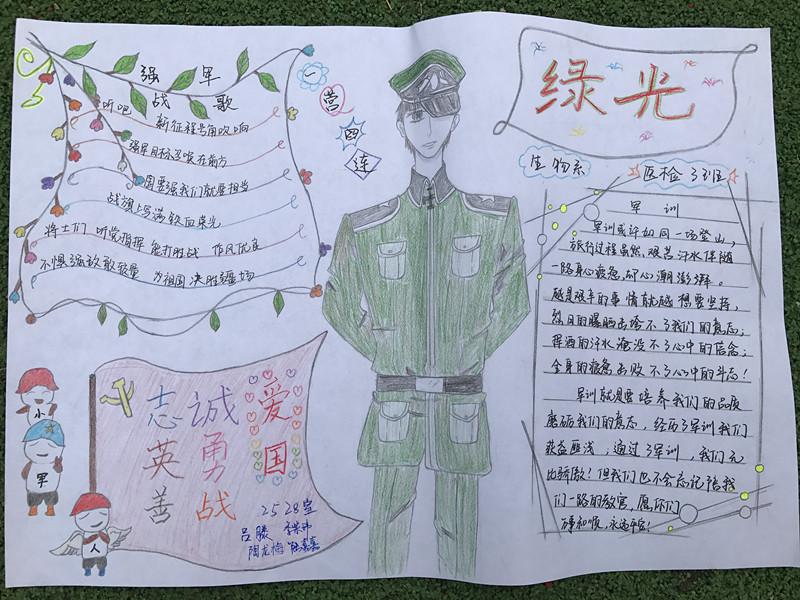 强军
战歌
听吧 新征程号角吹响
强军目标召唤在前方
国要强我们就要担当
战旗上写满铁血荣光
将士们 听党指挥 能打胜战 作风优良
不惧强敌敢较量 为祖国决胜疆场
一
营
四
连
绿光
生物系
医检3班
军训
军训或许如同一场登山，
旅行过程虽然艰苦汗水伴随
一路身心疲惫，却心潮澎湃。
越是艰辛的事情就越想要坚持，
烈日的曝晒击垮不了我们的意志；
挥洒的汗水淹没不了心中的信念；
全身的疲惫击败不了心中的斗志！
军训就是要培养我们的品质
磨砺我们的意志，经历了军训我们
获益匪浅；通过了军训，我们无
比骄傲！但我们也不会忘记陪我
们一路的教官，愿你们
万事和顺，永远平安！
爱国
诚勇战
志英善
2528宣
吕滕
陶龙梅
小
军
人